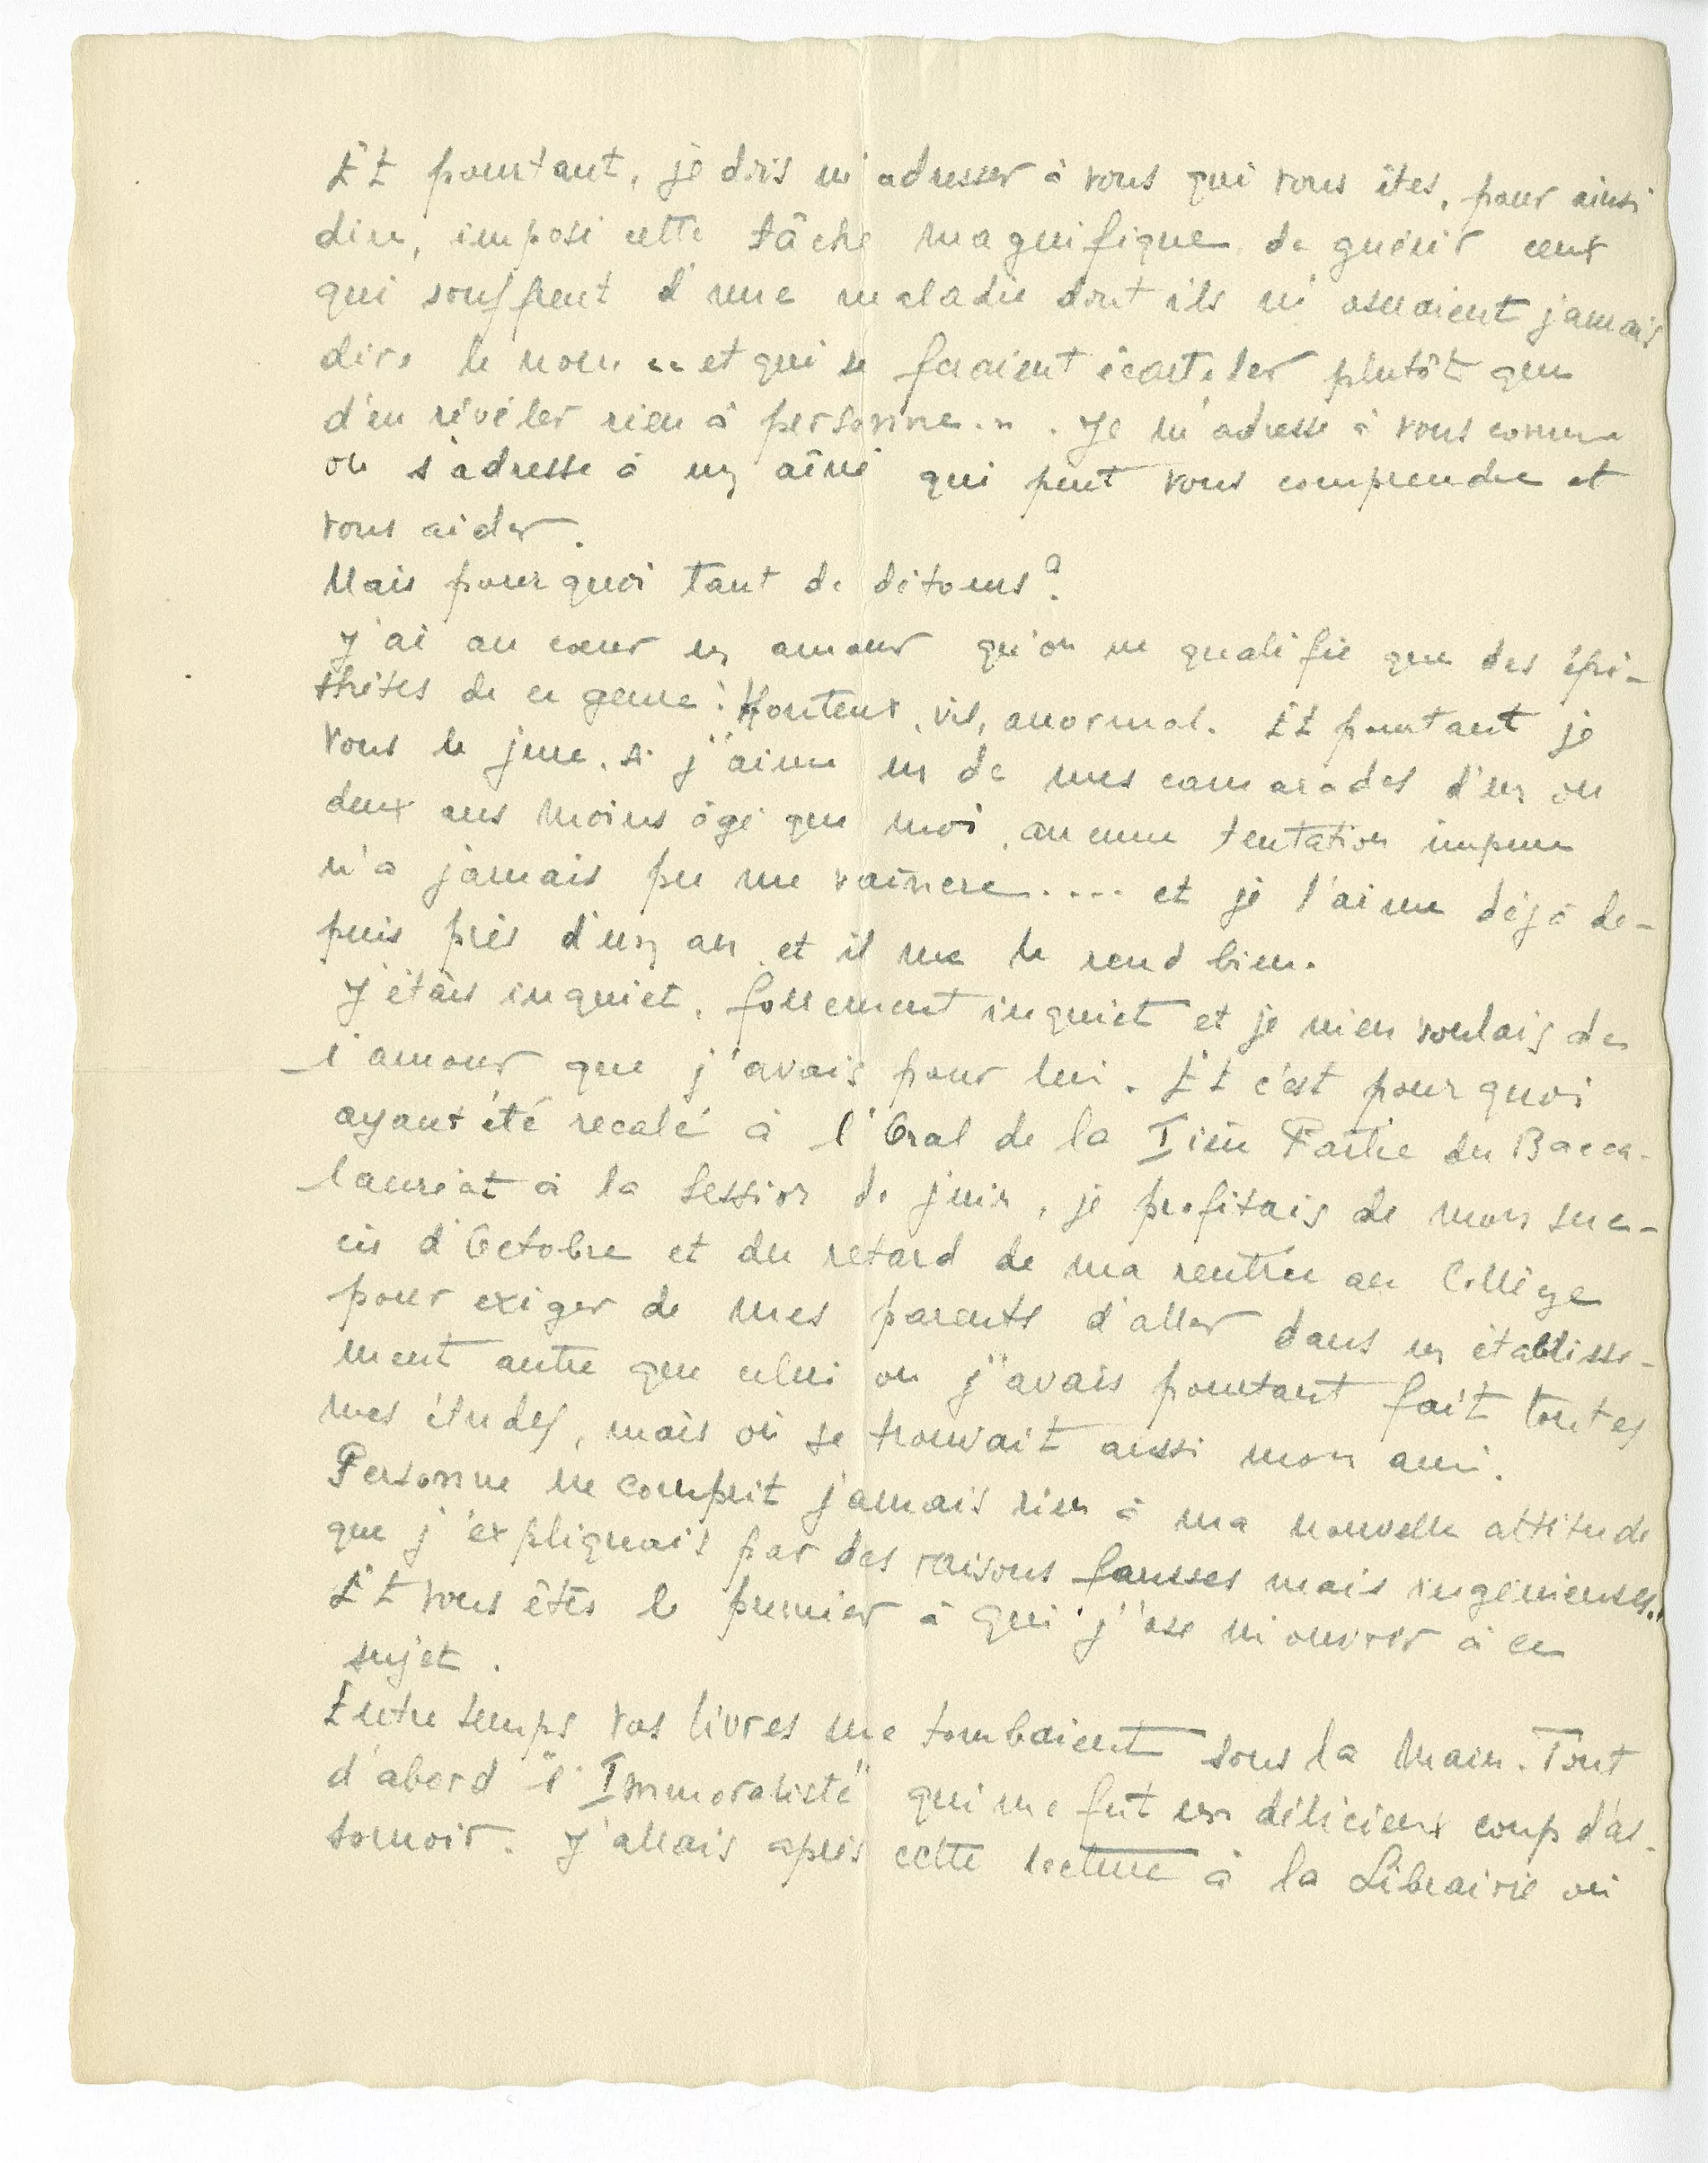 Et pourtant, je dois m'adresser à vous qui vous êtes, pour ainsi
dire, imposé cette tâche magnifique de guérir ceux
qui souffrent d'une maladie dont ils n'oseraient jamais
dire le nom .. et qui se feraient écarteler plutôt que
d'en révéler rien à personne... Je m'adresse à vous comme
on s'adresse à un aîné qui peut vous comprendre et
vous aider.
Mais pourquoi tant de détours?
J'ai au cœur un amour qu'on ne qualifie que des épi-
thètes de ce genre: Honteux, vil, anormal. Et pourtant je
vous le jure, si j'aime un de mes camarades d'un ou
deux ans moins âgé que moi, aucune tentation impure
n'a jamais pu me vaincre.... et je l'aime déjà de-
puis près d'un an et il me le rend bien.
J'étais inquiet, follement inquiet et je m'en voulais de
l'amour que j'avais pour lui. Et c'est pourquoi
ayant été recalé à l'Oral de la Ière Partie du Bacca-
lauréat à la Session de juin, je profitais de mon suc-
cès d'Octobre et du retard de ma rentrée au Collège
pour exiger de mes parents d'aller dans un établisse-
ment autre que celui où j'avais pourtant fait toutes
mes études, mais où se trouvait aussi mon ami.
Personne ne comprit jamais rien à ma nouvelle attitude
que j'expliquais par des raisons fausses mais ingénieuses.
Et vous êtes le premier à qui j'ose m'ouvrir à ce
sujet.
Entre temps vos livres me tombaient sous la main. Tout
d'abord "l'Immoraliste" qui me fut un délicieux coup d'as-
somoir. J'allais après cette lecture à la Librairie où